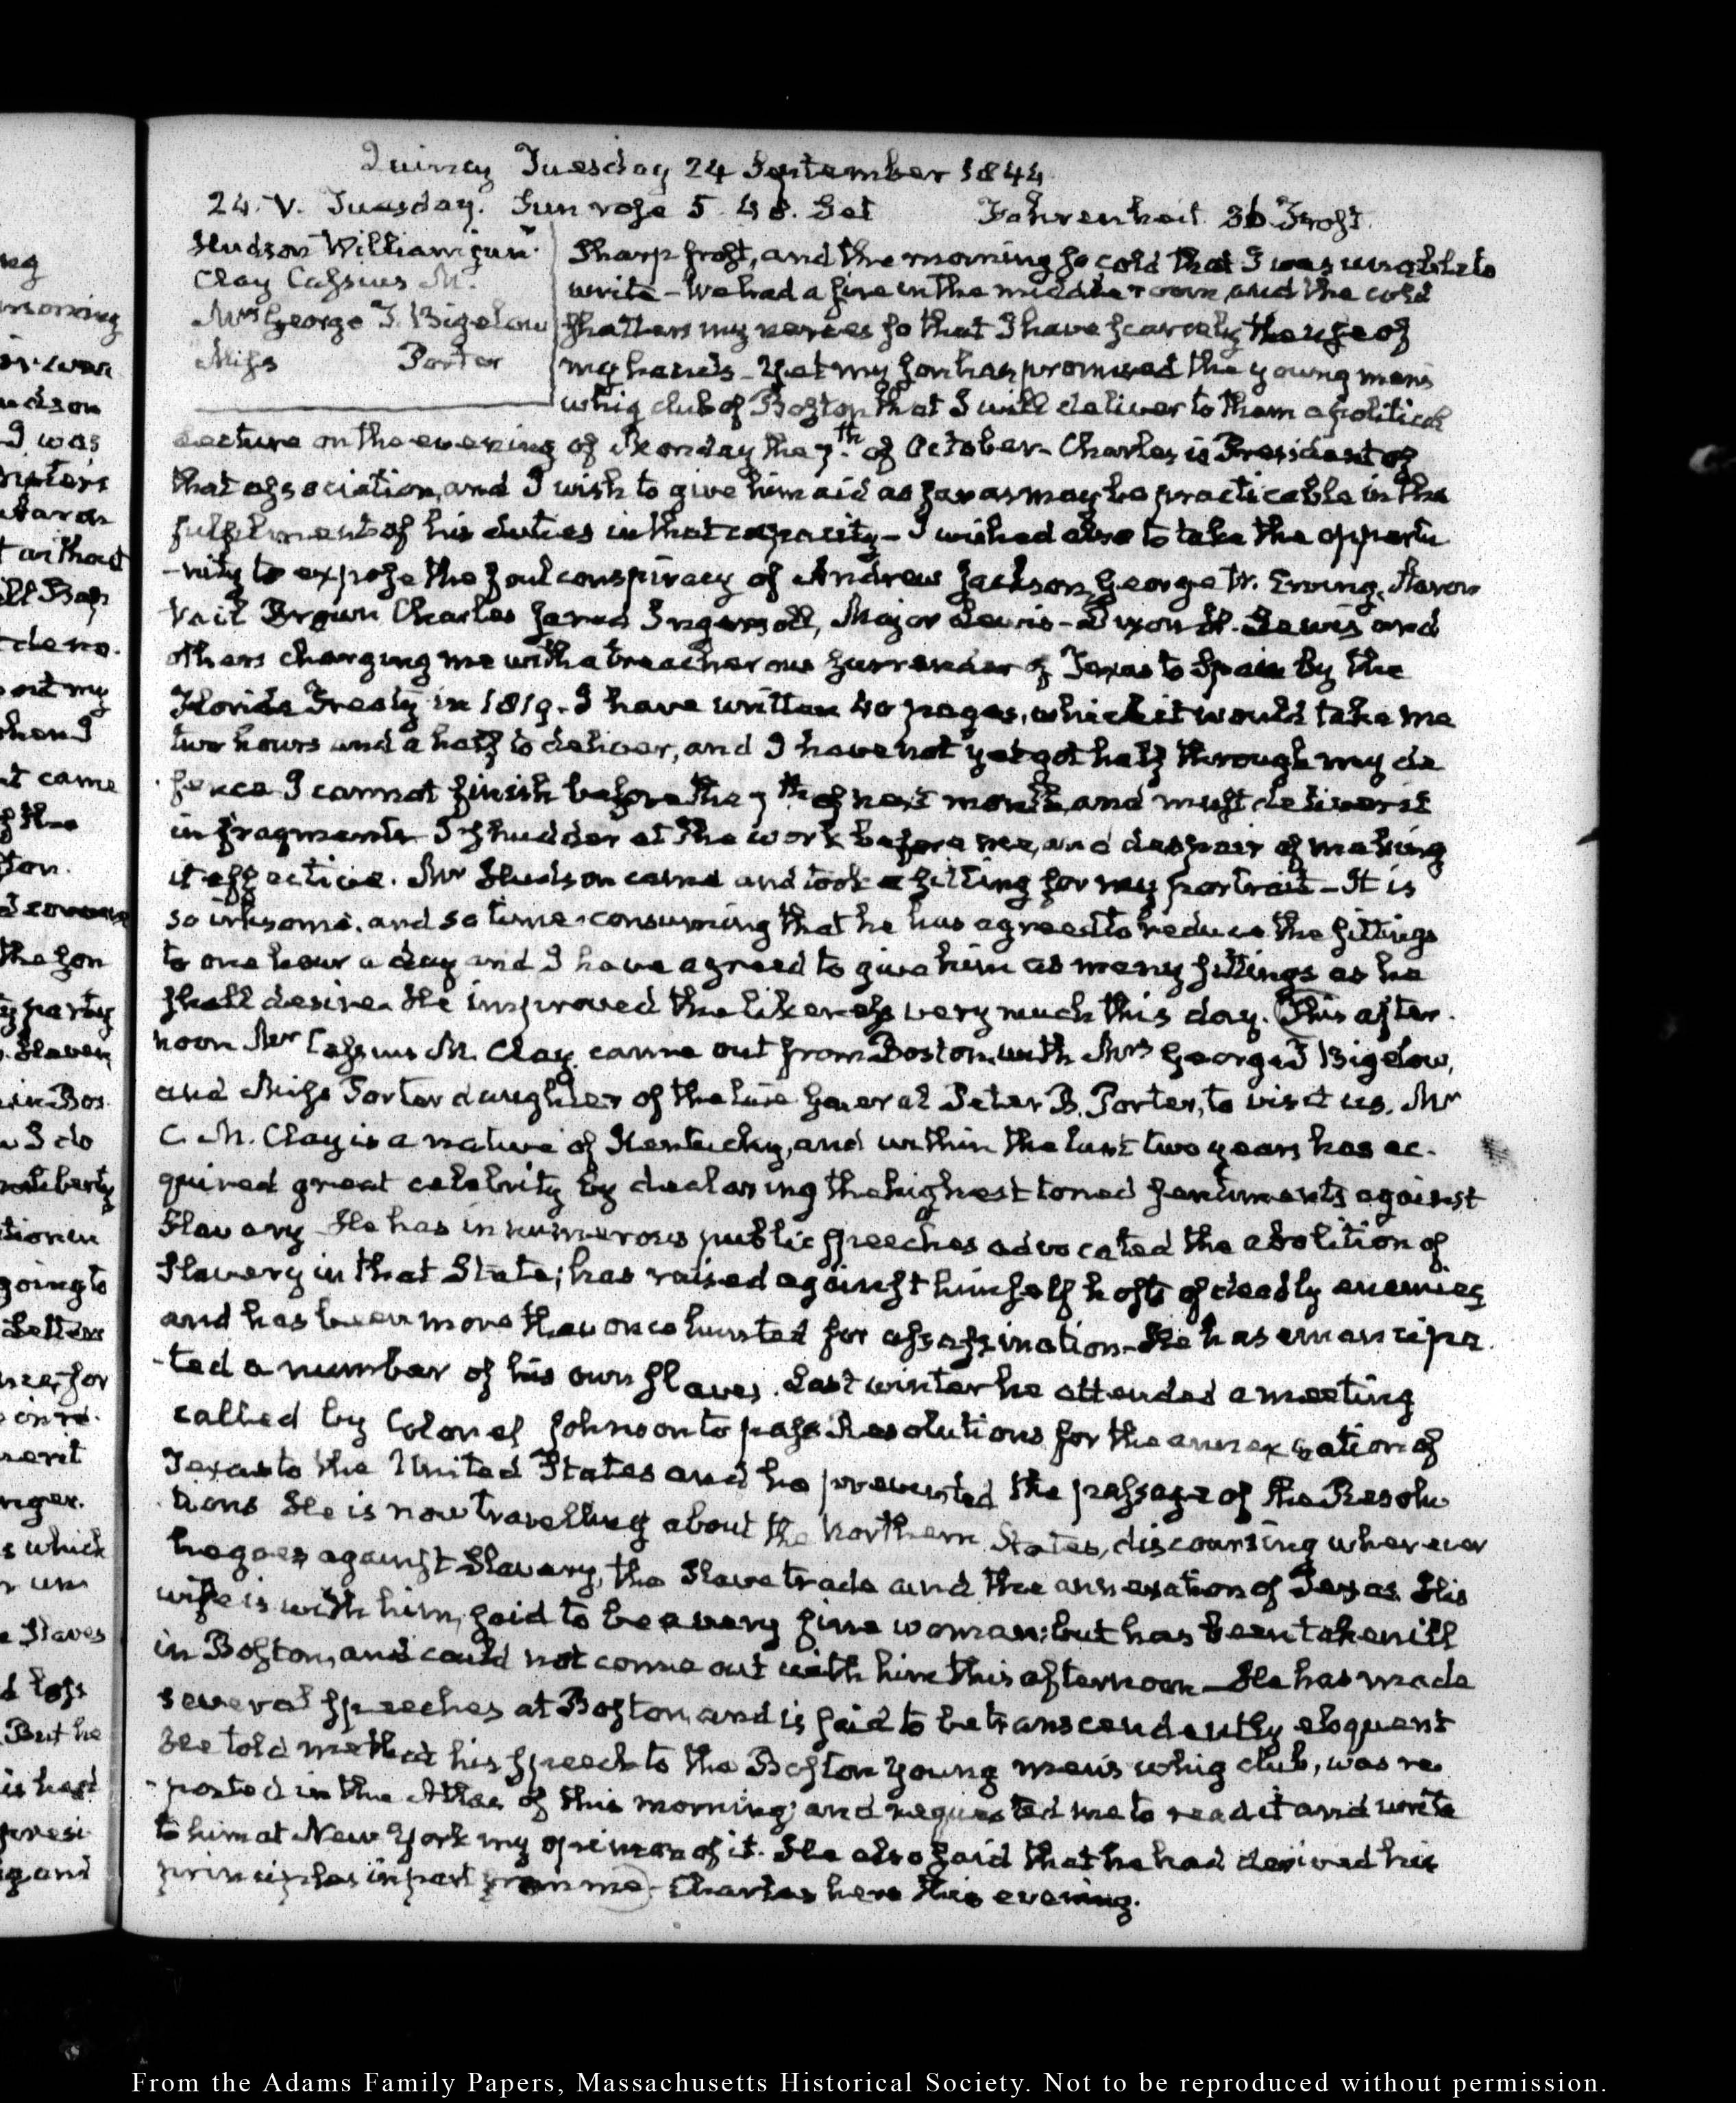 Quincy Tuesday 24 September 1844
24. V. Tuesday. Sun rose 5. 48. Set Fahrenheit 36. Frost.
Hudson William junr.
Clay Cassius M.
Mrs George T. Bigelow
Miss Porter
Sharp frost, and the morning so cold that I was unable to
write – We had a fire in the middle room, and the cold
shatters my nerves so that I have scarcely the use of
my hands – Yet my son has promised the young men's
whig club of Boston that I will deliver to them a political
lecture on the evening of Monday the 7th. of October – Charles is President of
that association, and I wish to give him aid as far as may be practicable in the
fulfilment of his duties in that capacity – I wished also to take the opportu
-nity to expose the foul conspiracy of Andrew Jackson, George W. Erving, Aaron
Vail Brown Charles Jared Ingersoll, Major Lewis – Dixon H. Lewis and
others charging me with a treacherous surrender of Texas to Spain by the
Florida Treaty in 1819 – I have written 40 pages, which it would take me
two hours and a half to deliver, and I have not yet got half through my de
fence I cannot finish before the 7th of next month, and must deliver it
in fragments I shudder at the work before me, and despair of making
it effective. Mr Hudson came and took a sitting for my portrait – It is
so irksome, and so time-consuming that he has agreed to reduce the sittings
to one hour a day and I have agreed to give him as many sittings as he
shall desire. He improved the likeness very much this day. This after.
noon Mr Cassius M. Clay came out from Boston, with Mrs George T Bigelow,
and Miss Porter daughter of the late General Peter B. Porter, to visit us. Mr
C. M. Clay is a native of Kentucky, and within the last two years has ac-
quired great celebrity by declaring the highest toned sentiments against
Slavery He has in numerous public speeches advocated the abolition of
Slavery in that State; has raised against himself hosts of deadly enemies
and has been more than once hunted for assassination – He has emancipa
-ted a number of his own slaves. Last winter he attended a meeting
called by Colonel Johnson to pass Resolutions for the annexation of
Texas to the United States and he prevented the passage of the Resolu
tions He is now travelling about the Northern States, discoursing wherever
he goes against Slavery, the Slave trade and the annexation of Texas. His
wife is with him, said to be a very fine woman; but has been taken ill
in Boston, and could not come out with him this afternoon – He has made
several speeches at Boston, and is said to be transcendently eloquent
He told me that his speech to the Boston Young men's whig club, was re
-ported in the Atlas of this morning; and requested me to read it and write
to him at New York my opinion of it. He also said that he had derived his
principles in part from me – Charles here this evening.
From the Adams Family Papers, Massachusetts Historical Society. Not to be reproduced without permission.